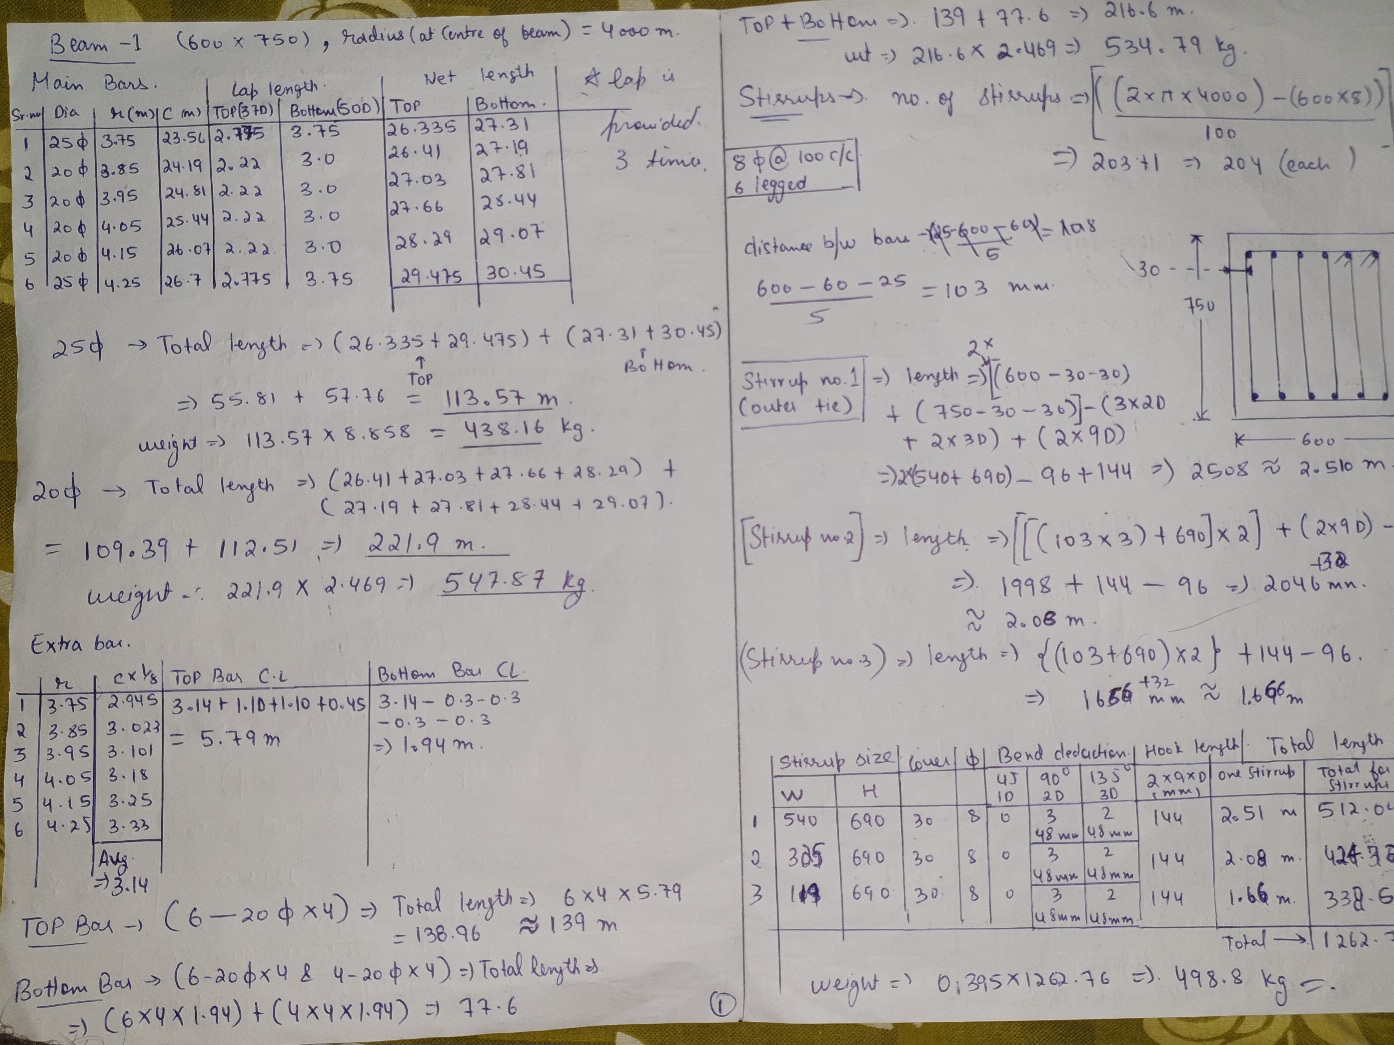 Beam -1 (600 x 750), radius (at Centre of beam) = 4000 m.
Main Bars. Lap length. Net length
Sr.no Dia r (m) C (m) TOP(37D) Bottom(50D) TOP Bottom.
1 25ϕ 3.75 23.56 2.775 3.75 26.335 27.31
2 20ϕ 3.85 24.19 2.22 3.0 26.41 27.19
3 20ϕ 3.95 24.81 2.22 3.0 27.03 27.81
4 20ϕ 4.05 25.44 2.22 3.0 27.66 28.44
5 20ϕ 4.15 26.07 2.22 3.0 28.29 29.07
6 25ϕ 4.25 26.7 2.775 3.75 29.475 30.45
* lap is
provided.
3 times.
25ϕ → Total length => (26.335 + 29.475) + (27.31 + 30.45)
↑ TOP ↑ Bottom.
=> 55.81 + 57.76 = 113.57 m.
weight => 113.57 x 8.858 = 438.16 kg.
20ϕ → Total length => (26.41 + 27.03 + 27.66 + 28.29) +
(27.19 + 27.81 + 28.44 + 29.07).
= 109.39 + 112.51 => 221.9 m.
weight -: 221.9 x 2.469 => 547.87 kg.
Extra bar.
r C x 1/8 TOP Bar C.L Bottom Bar CL.
1 3.75 2.945 3.14 + 1.10 + 1.10 + 0.45 3.14 - 0.3 - 0.3
2 3.85 3.023 = 5.79 m - 0.3 - 0.3
3 3.95 3.101 => 1.94 m.
4 4.05 3.18
5 4.15 3.25
6 4.25 3.33
Avg.
=> 3.14
TOP Bar → (6 - 20ϕ x 4) => Total length => 6 x 4 x 5.79
= 138.96 ≈ 139 m
Bottom Bar → (6-20ϕ x 4 & 4-20ϕ x 4) => Total length =>
=> (6 x 4 x 1.94) + (4 x 4 x 1.94) => 77.6
1
TOP + Bottom => 139 + 77.6 => 216.6 m.
wt => 216.6 x 2.469 => 534.79 kg.
Stirrups → no. of Stirrups => [((2 x π x 4000) - (600 x 8))
100
=> 203 + 1 => 204 (each)
8ϕ @ 100 c/c
6 legged
distance b/w bars = 108
5
600 - 60 - 25 = 103 mm.
5
30
750
600
Stirrup no.1 (outer tie) => length => 2x [(600 - 30 - 30)
+ (750 - 30 - 30)] - (3 x 2D
+ 2 x 3D) + (2 x 9D)
=> 2x(540 + 690) - 96 + 144 => 2508 ≈ 2.510 m.
[Stirrup no 2] => length => [[(103 x 3) + 690] x 2] + (2 x 9D) -
+32
=> 1998 + 144 - 96 => 2046 mm.
≈ 2.08 m.
(Stirrup no 3) => length => {(103 + 690) x 2} + 144 - 96.
+32
=> 1656 mm ≈ 1.666 m
Stirrup size Cover ϕ Bend deduction. Hook length. Total length
W H 45 1D 90° 2D 135° 3D 2 x 9 x D (mm) one Stirrup Total for Stirrups
1 540 690 30 8 0 3 48 mm 2 48 mm 144 2.51 m 512.04
2 325 690 30 8 0 3 48 mm 2 48 mm 144 2.08 m.
3 690 30 8 0 3 48 mm 2 48 mm. 144 1.66 m.
Total → 1262.7
weight => 0.395 x 1262.76 => 498.8 kg =.